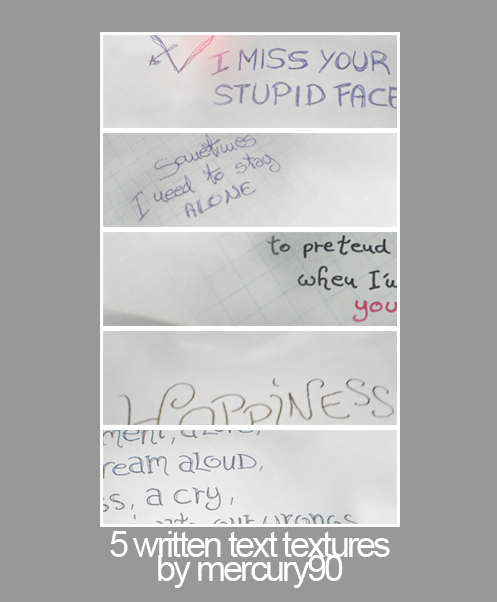 I MISS YOUR
STUPID FACE
Sometimes
I need to stay
ALONE
to pretend
when I'm
you
HAPPINESS
ream aLOUD,
a cry,
our wrongs
5 written text textures
by mercury90